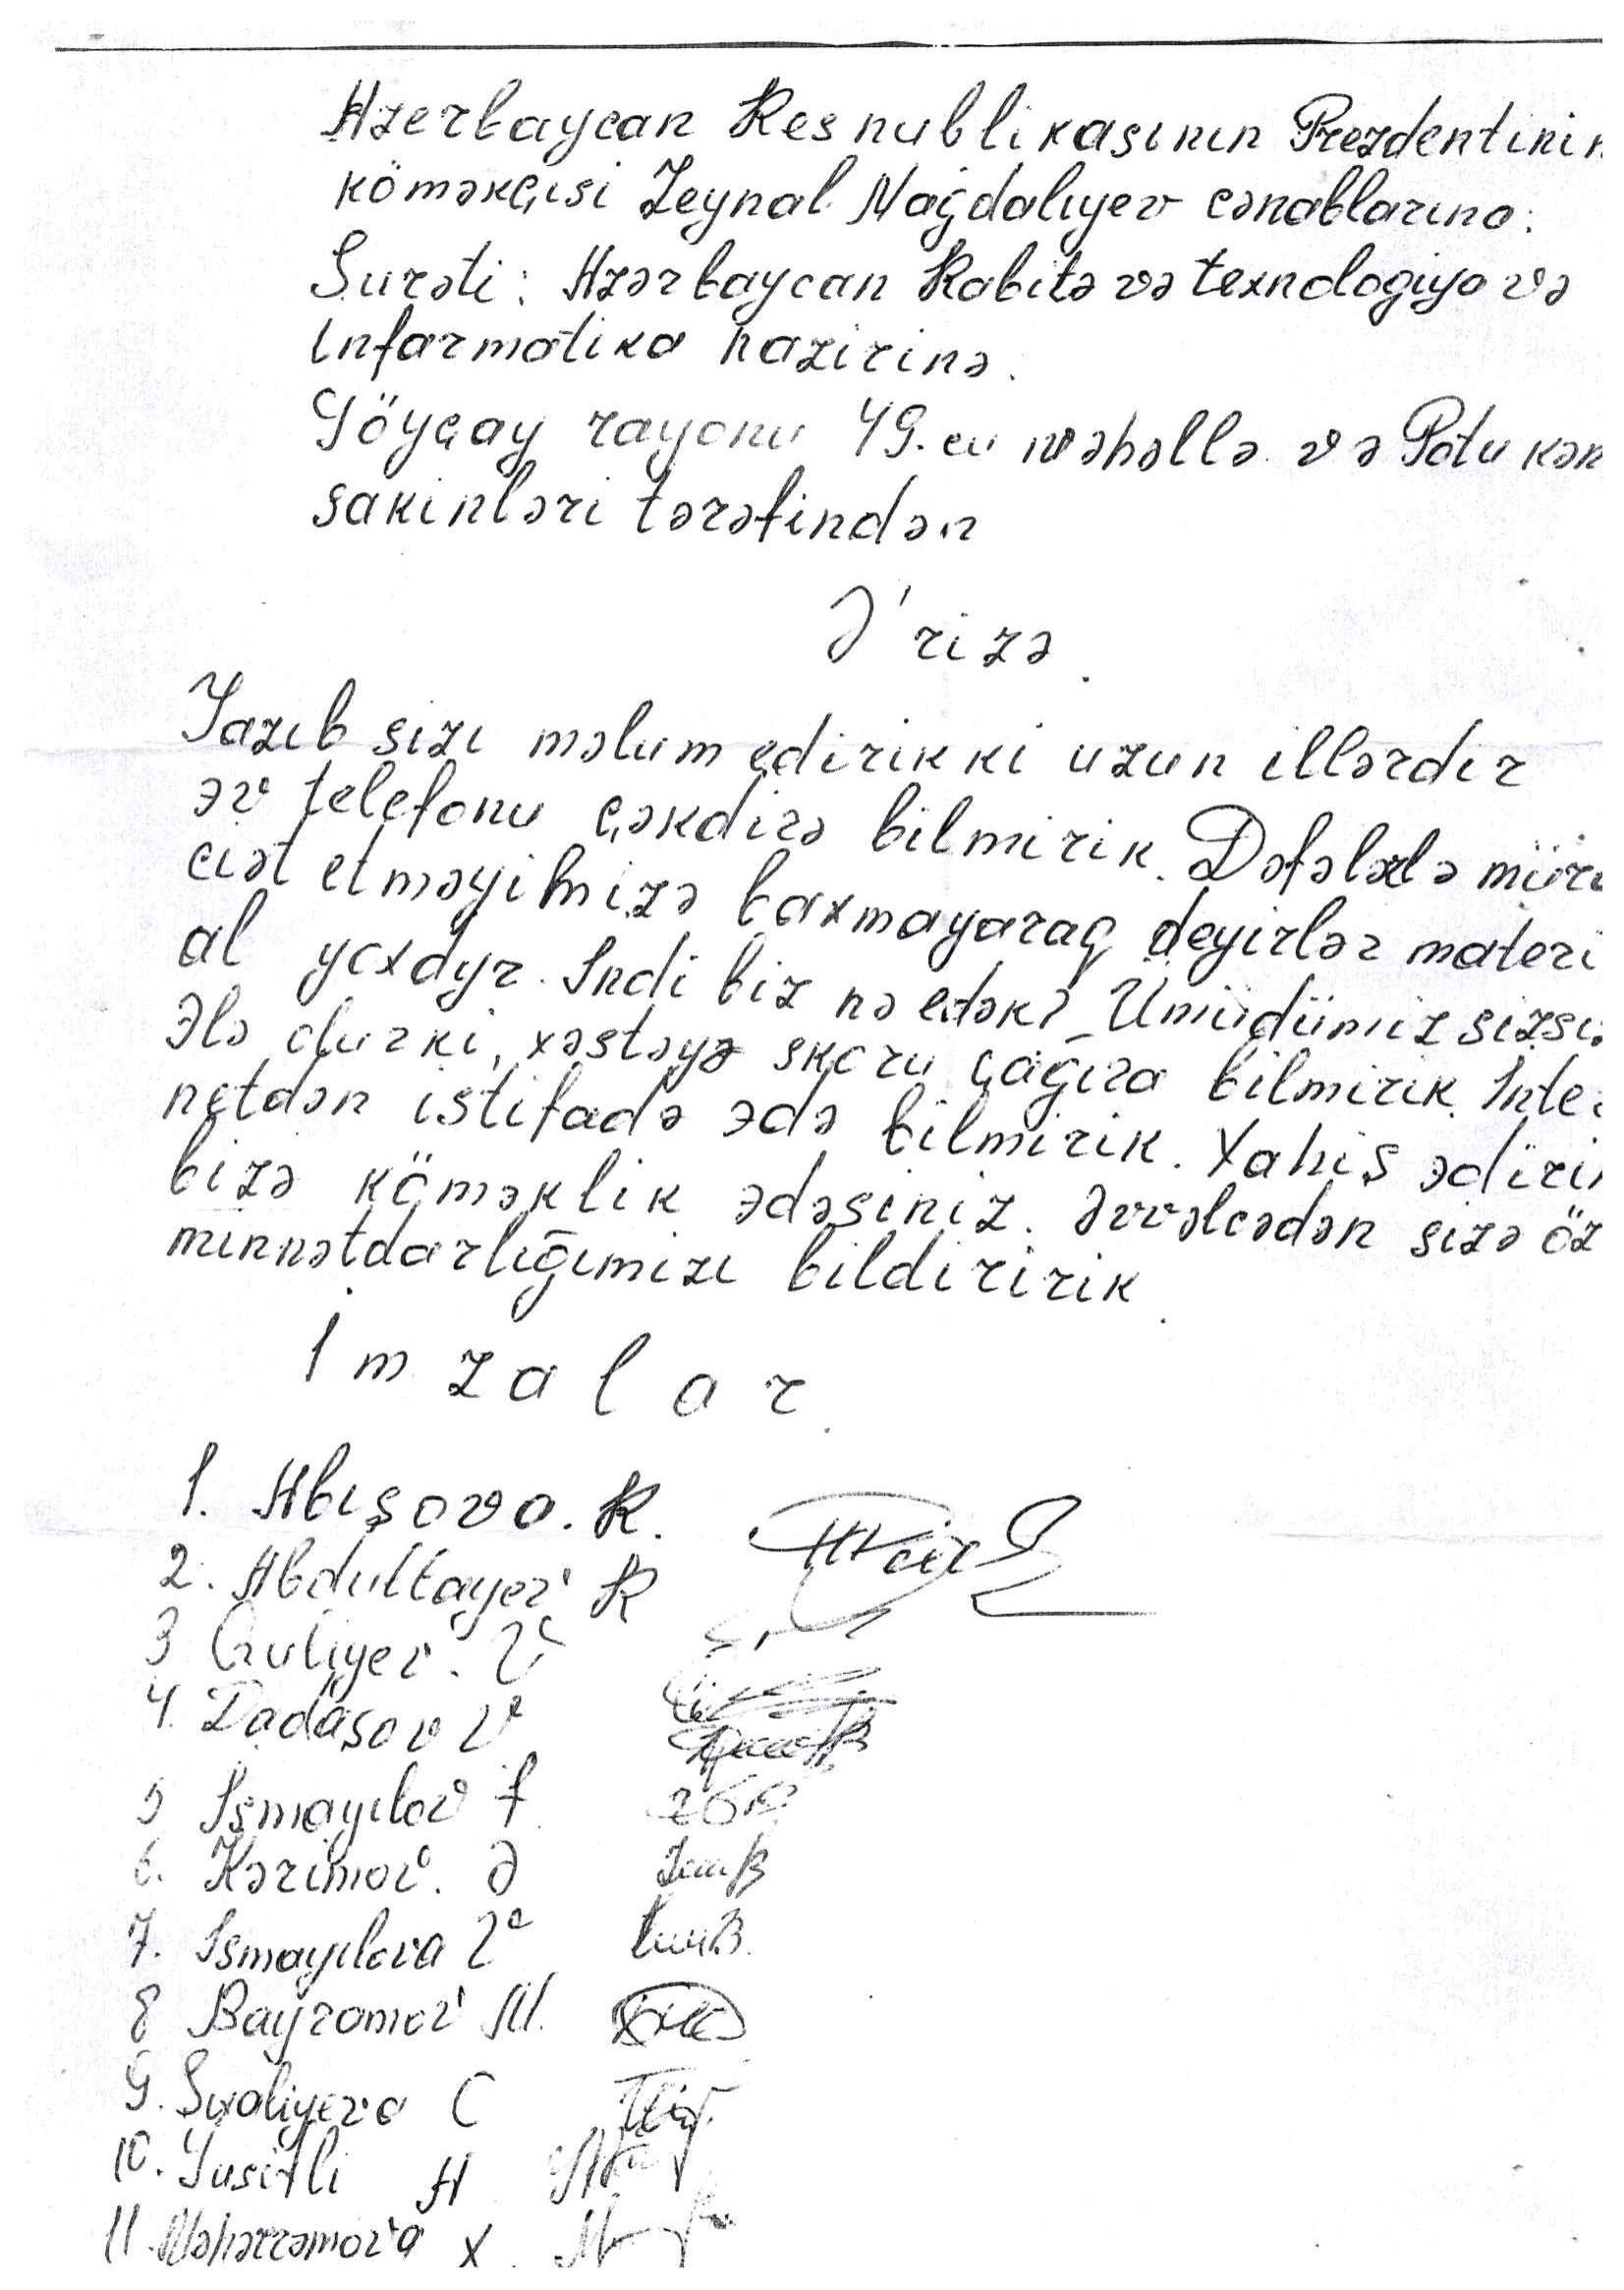 Azerbaycan Resnublikasının Prezdentinin
köməkçisi Zeynal Nağdalıyev cənablarına.
Surəti: Azərbaycan Rabitə və texnologiya və
informatika nazirinə.
Göyçay rayonu 49.cu məhəllə və Potu kən
sakinləri tərəfindən
Ə'rizə.
Yazıb sizı məlum edirik ki uzun illərdır
əv telefonu çəkdirə bilmirik. Dəfələrlə müra
ciət etməyimizə baxmayaraq deyirlər materi
al yoxdyr. Indi biz nə edək? Ümüdümüz sizsi
Ələ olurki, xəstəyə skoru çağıra bilmirik. Inter
netdən istifadə ədə bilmirik. Xahiş ədirik
bizə köməklik ədəsiniz. Əvvəlcədən sizə öz
minnətdarlığımızı bildiririk.
İmzalar.
1. Abışova. R.
2. Abdullayev R
3 Quliyev. V
4. Dadaşov V
5 Ismayılov f
6. Kərimov. Ə
7. Ismayılova V
8 Bayramov M.
9. C
10. Yusifli A
11. Məhərrəmova X.